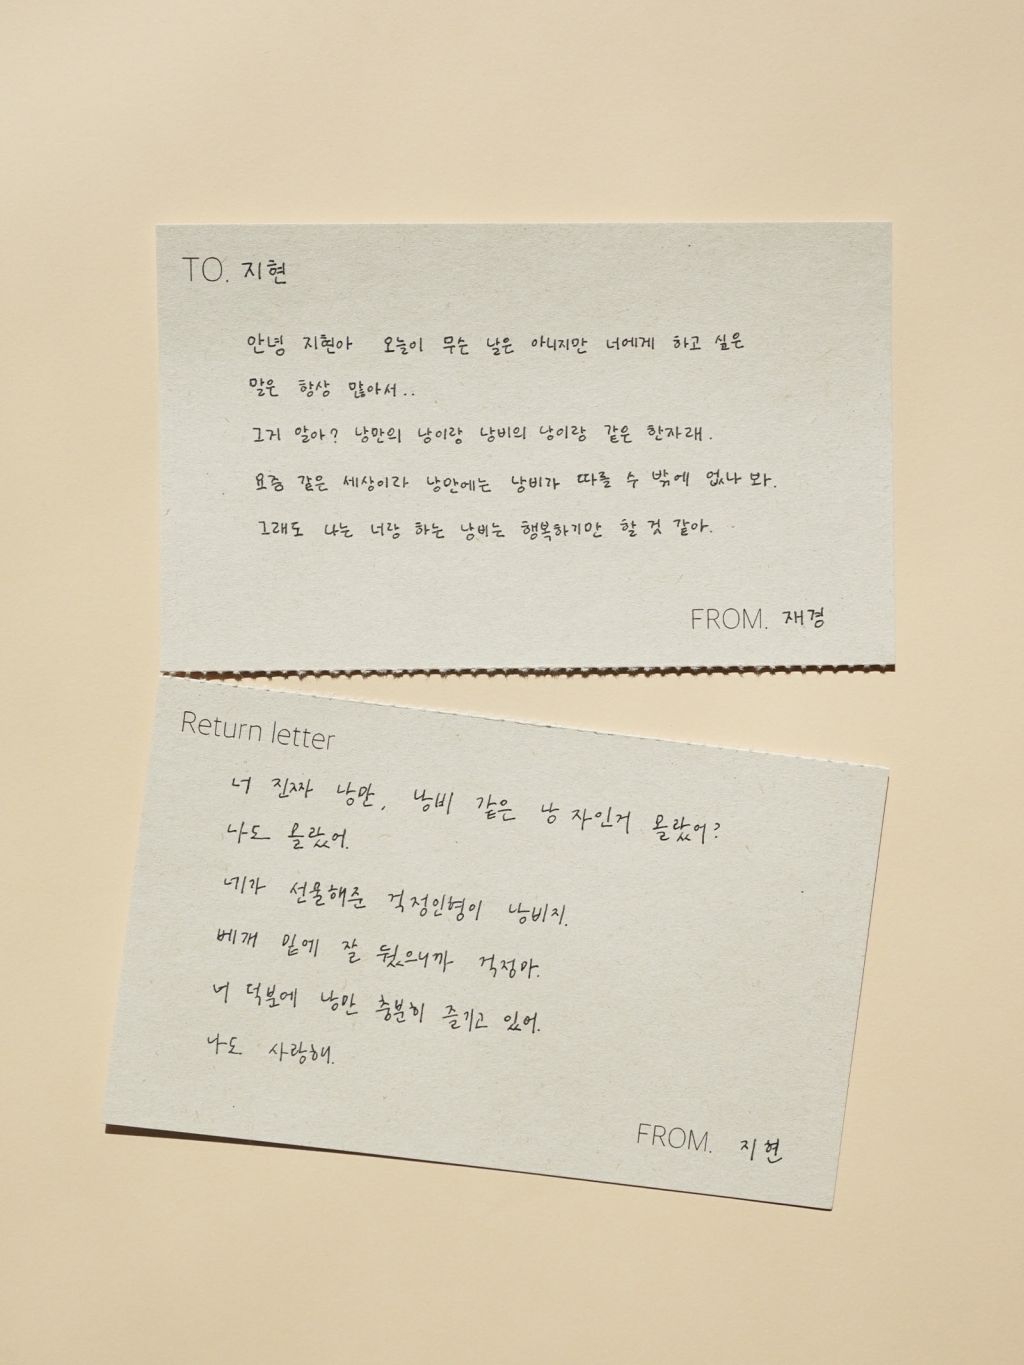 TO. 지현
안녕 지현아 오늘이 무슨 날은 아니지만 너에게 하고 싶은
말은 항상 많아서..
그거 알아? 낭만의 낭이랑 낭비의 낭이랑 같은 한자래.
요즘 같은 세상이라 낭만에는 낭비가 따를 수 밖에 없나 봐.
그래도 나는 너랑 하는 낭비는 행복하기만 할 것 같아.
FROM. 재경
Return letter
너 진짜 낭만, 낭비 같은 낭 자인거 몰랐어?
나도 몰랐어.
네가 선물해준 걱정인형이 낭비지.
베개 밑에 잘 뒀으니까 걱정마.
너 덕분에 낭만 충분히 즐기고 있어.
나도 사랑해.
FROM. 지현